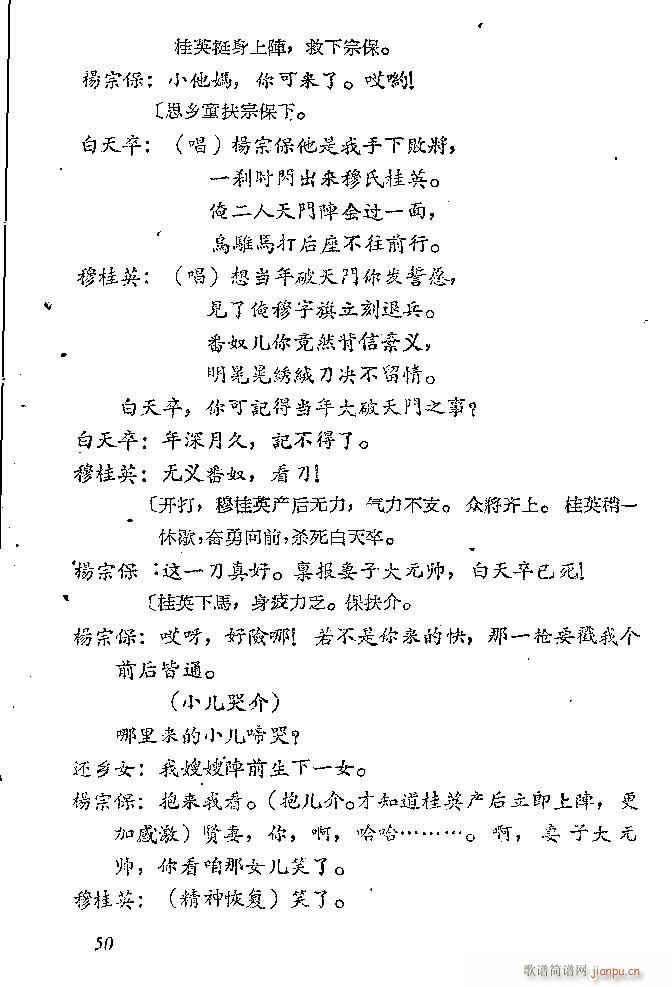 桂英挺身上陣，救下宗保。
楊宗保：小他媽，你可来了。哎喲！
〔思乡童扶宗保下。
白天卒：（唱）楊宗保他是我手下敗將，
一刹时閃出来穆氏桂英。
俺二人天門陣会过一面，
烏騅馬打后座不往前行。
穆桂英：（唱）想当年破天門你发誓愿，
見了俺穆字旗立刻退兵。
番奴儿你竟然背信弃义，
明晃晃綉絨刀决不留情。
白天卒，你可記得当年大破天門之事？
白天卒：年深月久，記不得了。
穆桂英：无义番奴，看刀！
〔开打，穆桂英产后无力，气力不支。众將齐上。桂英稍一
休歇，奋勇向前，杀死白天卒。
楊宗保：这一刀真好。禀报妻子大元帅，白天卒已死！
〔桂英下馬，身疲力乏。保扶介。
楊宗保：哎呀，好險哪！若不是你来的快，那一枪要戳我个
前后皆通。
（小儿哭介）
哪里来的小儿啼哭？
还乡女：我嫂嫂陣前生下一女。
楊宗保：抱来我看。（抱儿介。才知道桂英产后立即上陣，更
加感激）賢妻，你，啊，哈哈………。啊，妻子大元
帅，你看咱那女儿笑了。
穆桂英：（精神恢复）笑了。
50
歌谱简谱网 jianpu.cn